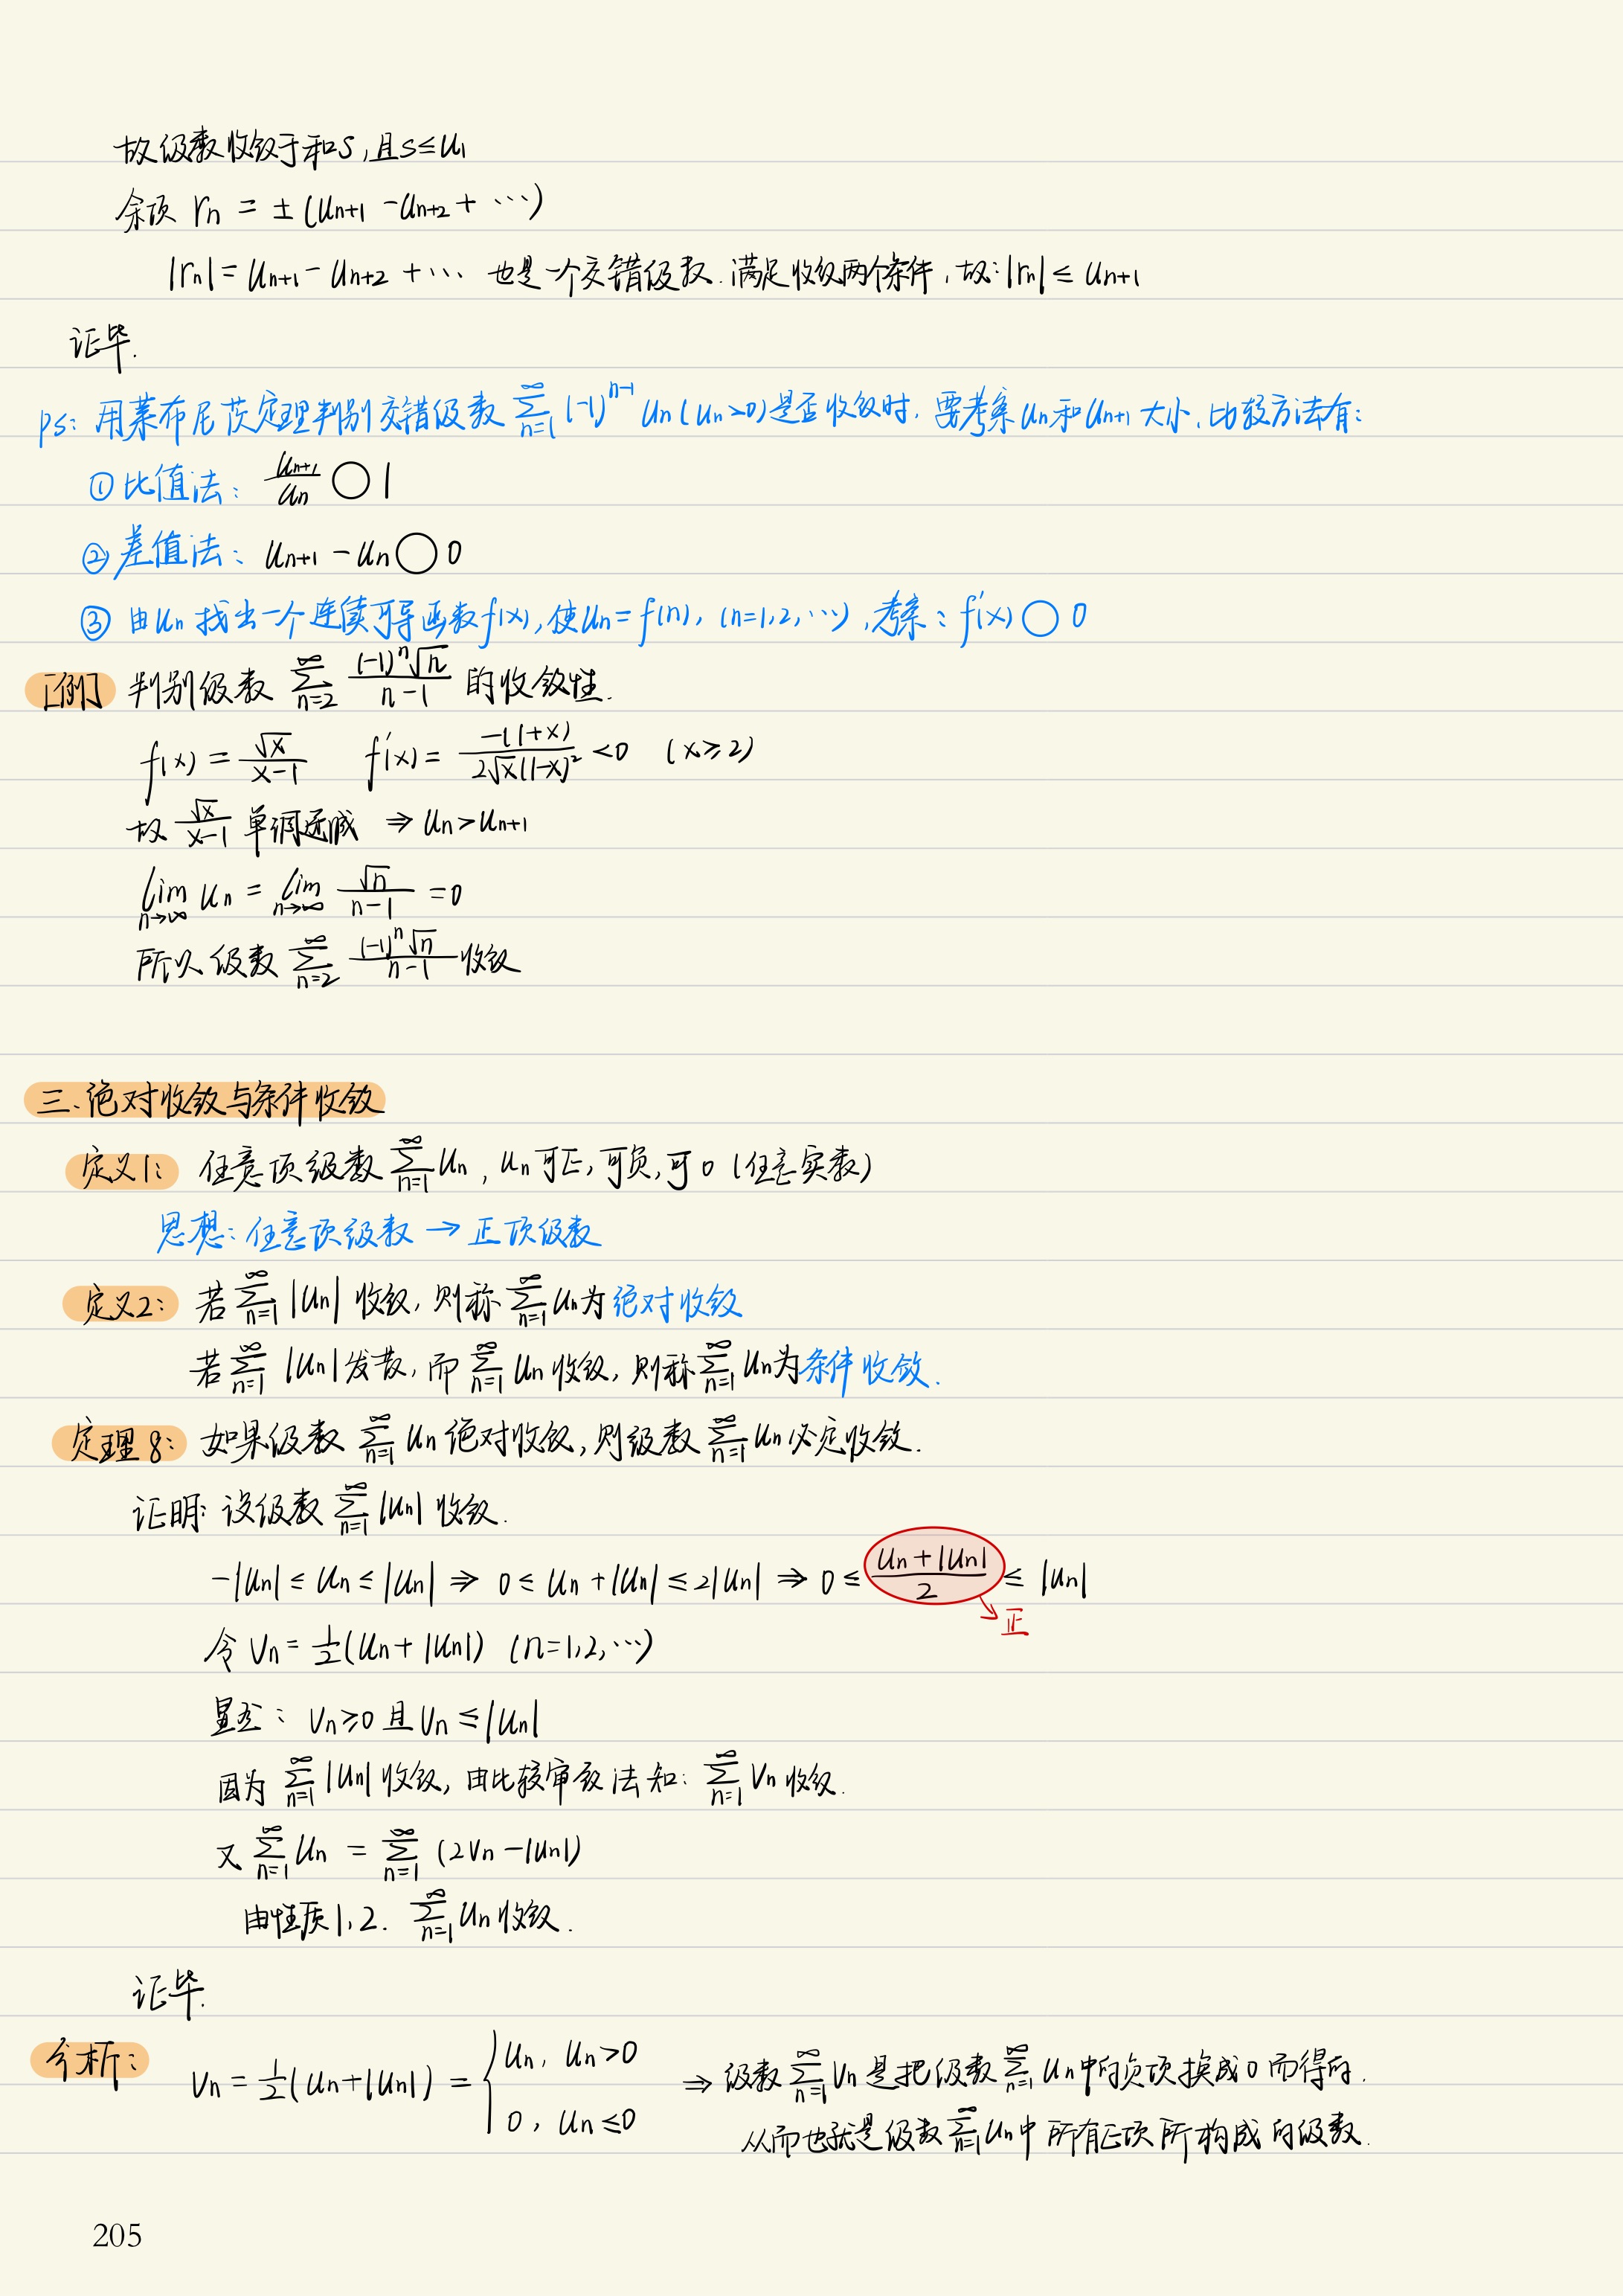 故级数收敛于和s,且s≤u₁
余项 rₙ = ±(uₙ₊₁ - uₙ₊₂ + ⋯)
|rₙ| = uₙ₊₁ - uₙ₊₂ + ⋯ 也是一个交错级数.满足收敛两个条件,故:|rₙ| ≤ uₙ₊₁
证毕.
ps: 用莱布尼茨定理判别交错级数 ∑_{n=1}^{∞} (-1)^{n-1} uₙ (uₙ>0)是否收敛时,要考察uₙ和uₙ₊₁大小,比较方法有:
①比值法: uₙ₊₁/uₙ ○ 1
②差值法: uₙ₊₁ - uₙ ○ 0
③ 由uₙ找出一个连续可导函数f(x),使uₙ=f(n), (n=1,2,⋯),考察: f′(x) ○ 0
[例] 判别级数 ∑_{n=2}^{∞} (-1)^n √n/(n-1) 的收敛性.
f(x) = √x/(x-1) f′(x) = -(1+x)/(2√x(1-x)²) <0 (x≥2)
故 √x/(x-1) 单调递减 ⇒ uₙ>uₙ₊₁
lim_{n→∞} uₙ = lim_{n→∞} √n/(n-1) = 0
所以级数 ∑_{n=2}^{∞} (-1)^n √n/(n-1) 收敛
三.绝对收敛与条件收敛
定义1: 任意项级数 ∑_{n=1}^{∞} uₙ, uₙ可正,可负,可0 (任意实数)
思想:任意项级数 → 正项级数
定义2: 若 ∑_{n=1}^{∞} |uₙ| 收敛,则称 ∑_{n=1}^{∞} uₙ为绝对收敛
若 ∑_{n=1}^{∞} |uₙ|发散,而 ∑_{n=1}^{∞} uₙ收敛,则称 ∑_{n=1}^{∞} uₙ为条件收敛.
定理8: 如果级数 ∑_{n=1}^{∞} uₙ绝对收敛,则级数 ∑_{n=1}^{∞} uₙ必定收敛.
证明:设级数 ∑_{n=1}^{∞} |uₙ| 收敛.
-|uₙ| ≤ uₙ ≤ |uₙ| ⇒ 0 ≤ uₙ + |uₙ| ≤ 2|uₙ| ⇒ 0 ≤ (uₙ+|uₙ|)/2 ≤ |uₙ|
正
令 vₙ = 1/2(uₙ + |uₙ|) (n=1,2,⋯)
显然: vₙ≥0且vₙ ≤|uₙ|
因为 ∑_{n=1}^{∞} |uₙ|收敛,由比较审敛法知: ∑_{n=1}^{∞} vₙ收敛.
又 ∑_{n=1}^{∞} uₙ = ∑_{n=1}^{∞} (2vₙ - |uₙ|)
由性质1,2. ∑_{n=1}^{∞} uₙ收敛.
证毕.
分析: vₙ = 1/2(uₙ+|uₙ|) = { uₙ, uₙ>0 ; 0, uₙ≤0 ⇒ 级数 ∑_{n=1}^{∞} vₙ是把级数 ∑_{n=1}^{∞} uₙ中的负项换成0而得的.
从而也就是级数 ∑_{n=1}^{∞} uₙ中所有正项所构成的级数.
205